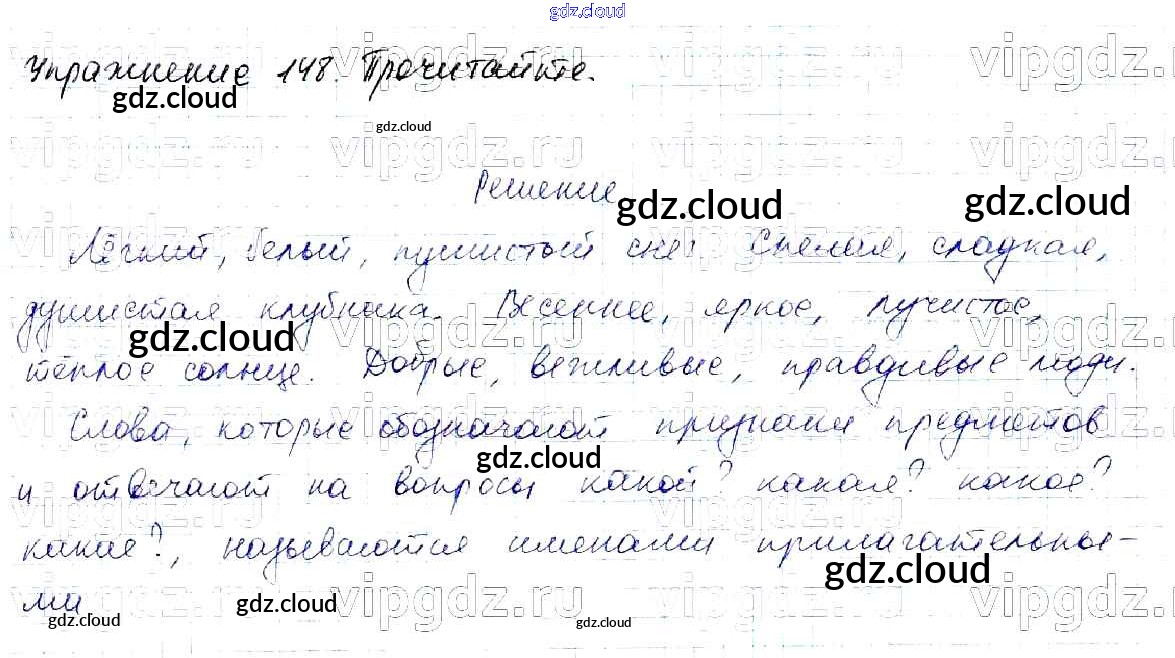 gdz.cloud
Упражнение 148. Прочитайте.
gdz.cloud
gdz.cloud
vipgdz.ru vipgdz.ru vipgdz.ru
Решение
gdz.cloud gdz.cloud
Лёгкий, белый, пушистый снег. Спелая, сладкая,
душистая клубника. Весеннее, яркое, лучистое,
gdz.cloud
тёплое солнце. Добрые, вежливые, правдивые люди.
Слова, которые обозначают признаки предметов
gdz.cloud
и отвечают на вопросы какой? какая? какое?
какие?, называются именами прилагательны-
gdz.cloud
ми
gdz.cloud gdz.cloud gdz.cloud
vipgdz.ru vipgdz.ru vipgdz.ru